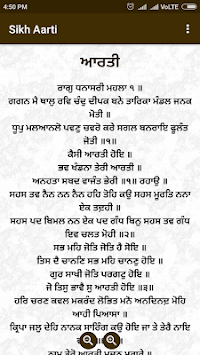 4:50 PM
VoLTE
Sikh Aarti
ਆਰਤੀ
ਰਾਗੁ ਧਨਾਸਰੀ ਮਹਲਾ ੧ ॥
ਗਗਨ ਮੈ ਥਾਲੁ ਰਵਿ ਚੰਦੁ ਦੀਪਕ ਬਨੇ ਤਾਰਿਕਾ ਮੰਡਲ ਜਨਕ
ਮੋਤੀ ॥
ਧੂਪੁ ਮਲਆਨਲੋ ਪਵਣੁ ਚਵਰੋ ਕਰੇ ਸਗਲ ਬਨਰਾਇ ਫੂਲੰਤ
ਜੋਤੀ ॥
ਕੈਸੀ ਆਰਤੀ ਹੋਇ ॥
ਭਵ ਖੰਡਨਾ ਤੇਰੀ ਆਰਤੀ ॥
ਅਨਹਤਾ ਸਬਦ ਵਾਜੰਤ ਭੇਰੀ ॥੧॥ ਰਹਾਉ ॥
ਸਹਸ ਤਵ ਨੈਨ ਨਨ ਨੈਨ ਹਹਿ ਤੋਹਿ ਕਉ ਸਹਸ ਮੂਰਤਿ ਨਨਾ
ਏਕ ਤੋੁਹੀ ॥
ਸਹਸ ਪਦ ਬਿਮਲ ਨਨ ਏਕ ਪਦ ਗੰਧ ਬਿਨੁ ਸਹਸ ਤਵ ਗੰਧ
ਇਵ ਚਲਤ ਮੋਹੀ ॥
ਸਭ ਮਹਿ ਜੋਤਿ ਜੋਤਿ ਹੈ ਸੋਇ ॥
ਤਿਸ ਦੈ ਚਾਨਣਿ ਸਭ ਮਹਿ ਚਾਨਣੁ ਹੋਇ ॥
ਗੁਰ ਸਾਖੀ ਜੋਤਿ ਪਰਗਟੁ ਹੋਇ ॥
ਜੋ ਤਿਸੁ ਭਾਵੈ ਸੁ ਆਰਤੀ ਹੋਇ ॥
ਹਰਿ ਚਰਣ ਕਵਲ ਮਕਰੰਦ ਲੋਭਿਤ ਮਨੋ ਅਨਦਿਨੋੁ ਮੋਹਿ
ਆਹੀ ਪਿਆਸਾ ॥
ਕ੍ਰਿਪਾ ਜਲੁ ਦੇਹਿ ਨਾਨਕ ਸਾਰਿੰਗ ਕਉ ਹੋਇ ਜਾ ਤੇ ਤੇਰੈ ਨਾਇ
ਨਾਮੁ ਤੇਰੋ ਆਰਤੀ ਮਜਨੁ ਮੁਰਾਰੇ ॥